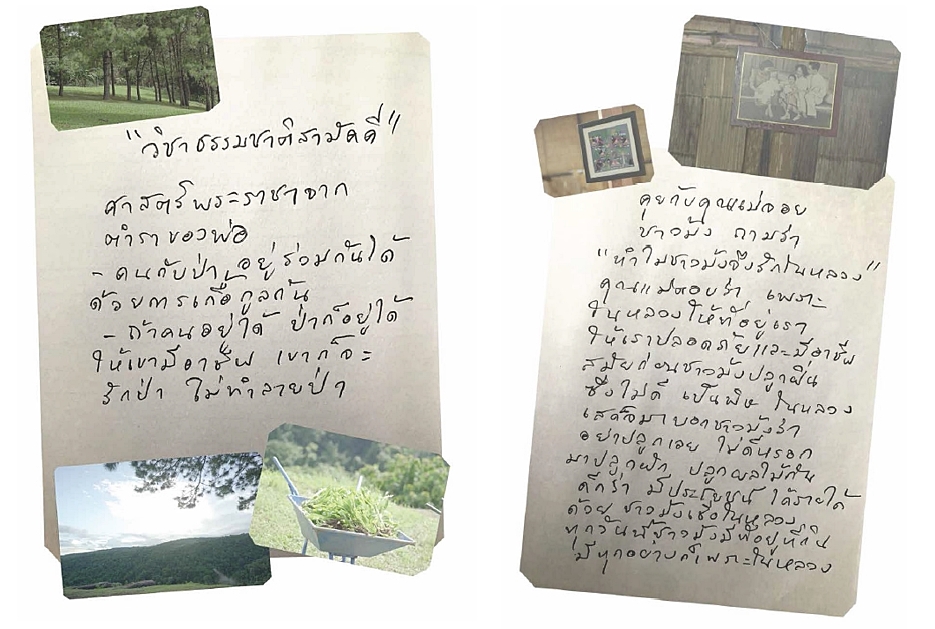 "วิชาธรรมชาติสามัคคี"
ศาสตร์พระราชาจาก
ตำราของพ่อ
- คนกับป่า อยู่ร่วมกันได้
ด้วยการเกื้อกูลกัน
- ถ้าคนอยู่ได้ ป่าก็อยู่ได้
ให้เขามีอาชีพ เขาก็จะ
รักป่า ไม่ทำลายป่า
คุยกับคุณแม่จอย
ชาวม้ง ถามว่า
"ทำไมชาวม้งจึงรักในหลวง"
คุณแม่ตอบว่า เพราะ
ในหลวงให้ที่อยู่เรา
ให้เราปลอดภัยและมีอาชีพ
สมัยก่อนชาวม้งปลูกฝิ่น
ซึ่งไม่ดี เป็นพิษ ในหลวง
เสด็จมาบอกชาวม้งว่า
อย่าปลูกเลย ไม่ดีหรอก
มาปลูกผัก ปลูกผลไม้กัน
ดีกว่า มีประโยชน์ ได้รายได้
ด้วย ชาวม้งเชื่อในหลวง
ทุกวันนี้ชาวม้งมีที่อยู่ที่กิน
มีทุกอย่างก็เพราะในหลวง